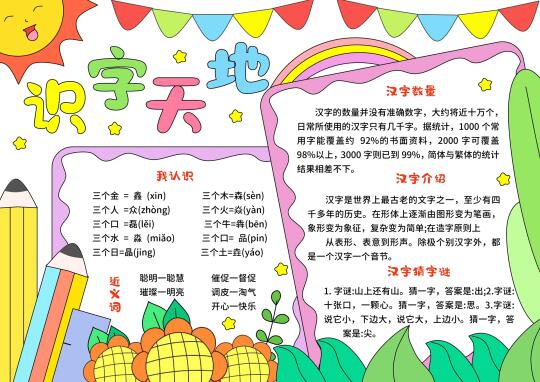 识字天地
我认识
三个金 = 鑫 (xin) 三个木=森(sèn)
三个人 =众(zhòng) 三个火=焱(yàn)
三个口 =磊(lěi) 三个牛=犇(bēn)
三个水 = 淼 (miǎo) 三个口= 品(pìn)
三个日=晶(jing) 三个土=垚(yáo)
近义词
聪明—聪慧 催促—督促
璀璨—明亮 调皮—淘气
开心—快乐
汉字数量
汉字的数量并没有准确数字，大约将近十万个，
日常所使用的汉字只有几千字。据统计，1000 个常
用字能覆盖约 92%的书面资料，2000 字可覆盖
98%以上，3000 字则已到 99%，简体与繁体的统计
结果相差不下。
汉字介绍
汉字是世界上最古老的文字之一，至少有四
千多年的历史。在形体上逐渐由图形变为笔画，
象形变为象征，复杂变为简单;在造字原则上
从表形、表意到形声。除极个别汉字外，都
是一个汉字一个音节。
汉字猜字谜
1. 字谜:山上还有山。猜一字，答案是:出;2.字谜:
十张口，一颗心。猜一字，答案是:思。3.字谜:
说它小，下边大，说它大，上边小。猜一字，答
案是:尖。